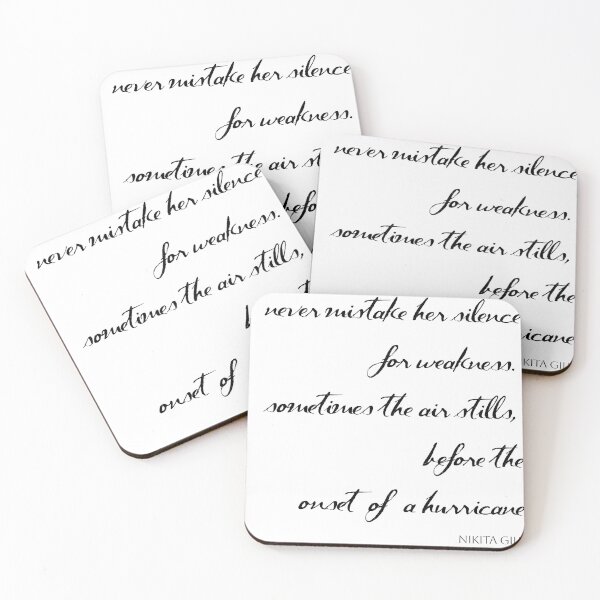 never mistake her silence
for weakness.
the air
never mistake her silence
for weakness.
sometimes the air stills,
before the
never mistake her silence
for weakness.
sometimes the air stills,
onset of
never mistake her silence
for weakness.
sometimes the air stills,
before the
onset of a hurricane
NIKITA